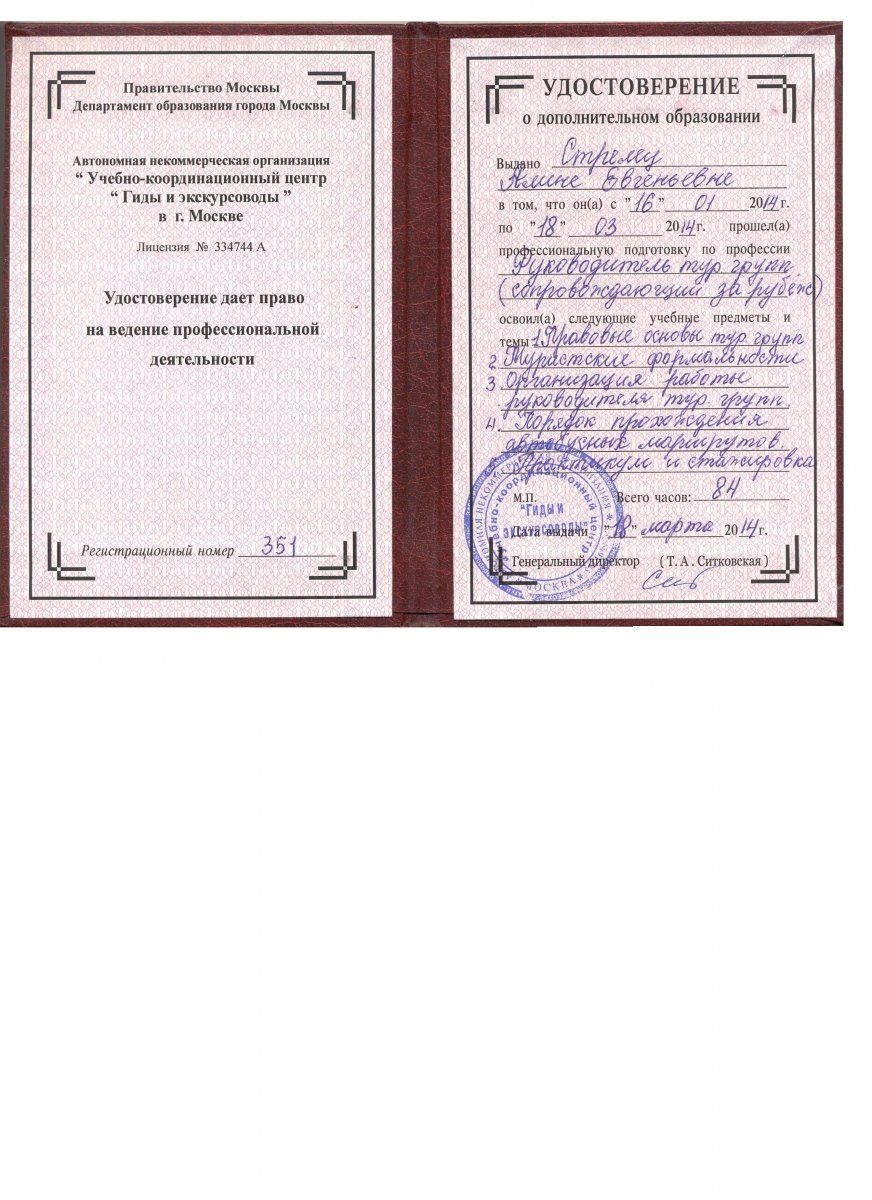 Правительство Москвы
Департамент образования города Москвы
Автономная некоммерческая организация
“ Учебно-координационный центр
“ Гиды и экскурсоводы ”
в г. Москве
Лицензия № 334744 А
Удостоверение дает право
на ведение профессиональной
деятельности
Регистрационный номер 351
УДОСТОВЕРЕНИЕ
о дополнительном образовании
Выдано Стрему
Алине Евгеньевне
в том, что он(а) с "16" 01 2014 г.
по "18" 03 2014 г. прошел(а)
профессиональную подготовку по профессии
Руководитель тур групп
(сопровождающий за рубеж)
освоил(а) следующие учебные предметы и
темы 1. Правовые основы тур. групп
2. Туристские формальности
3. Организация работы
руководителя тур. групп.
4. Порядок прохождения
автобусных маршрутов.
Практикум и стажировка
М.П. Всего часов: 84
Дата выдачи "18" марта 2014 г.
Генеральный директор ( Т. А . Ситковская )
"Учебно-координационный центр"
"ГИДЫ И
ЭКСКУРСОВОДЫ"
МОСКВА